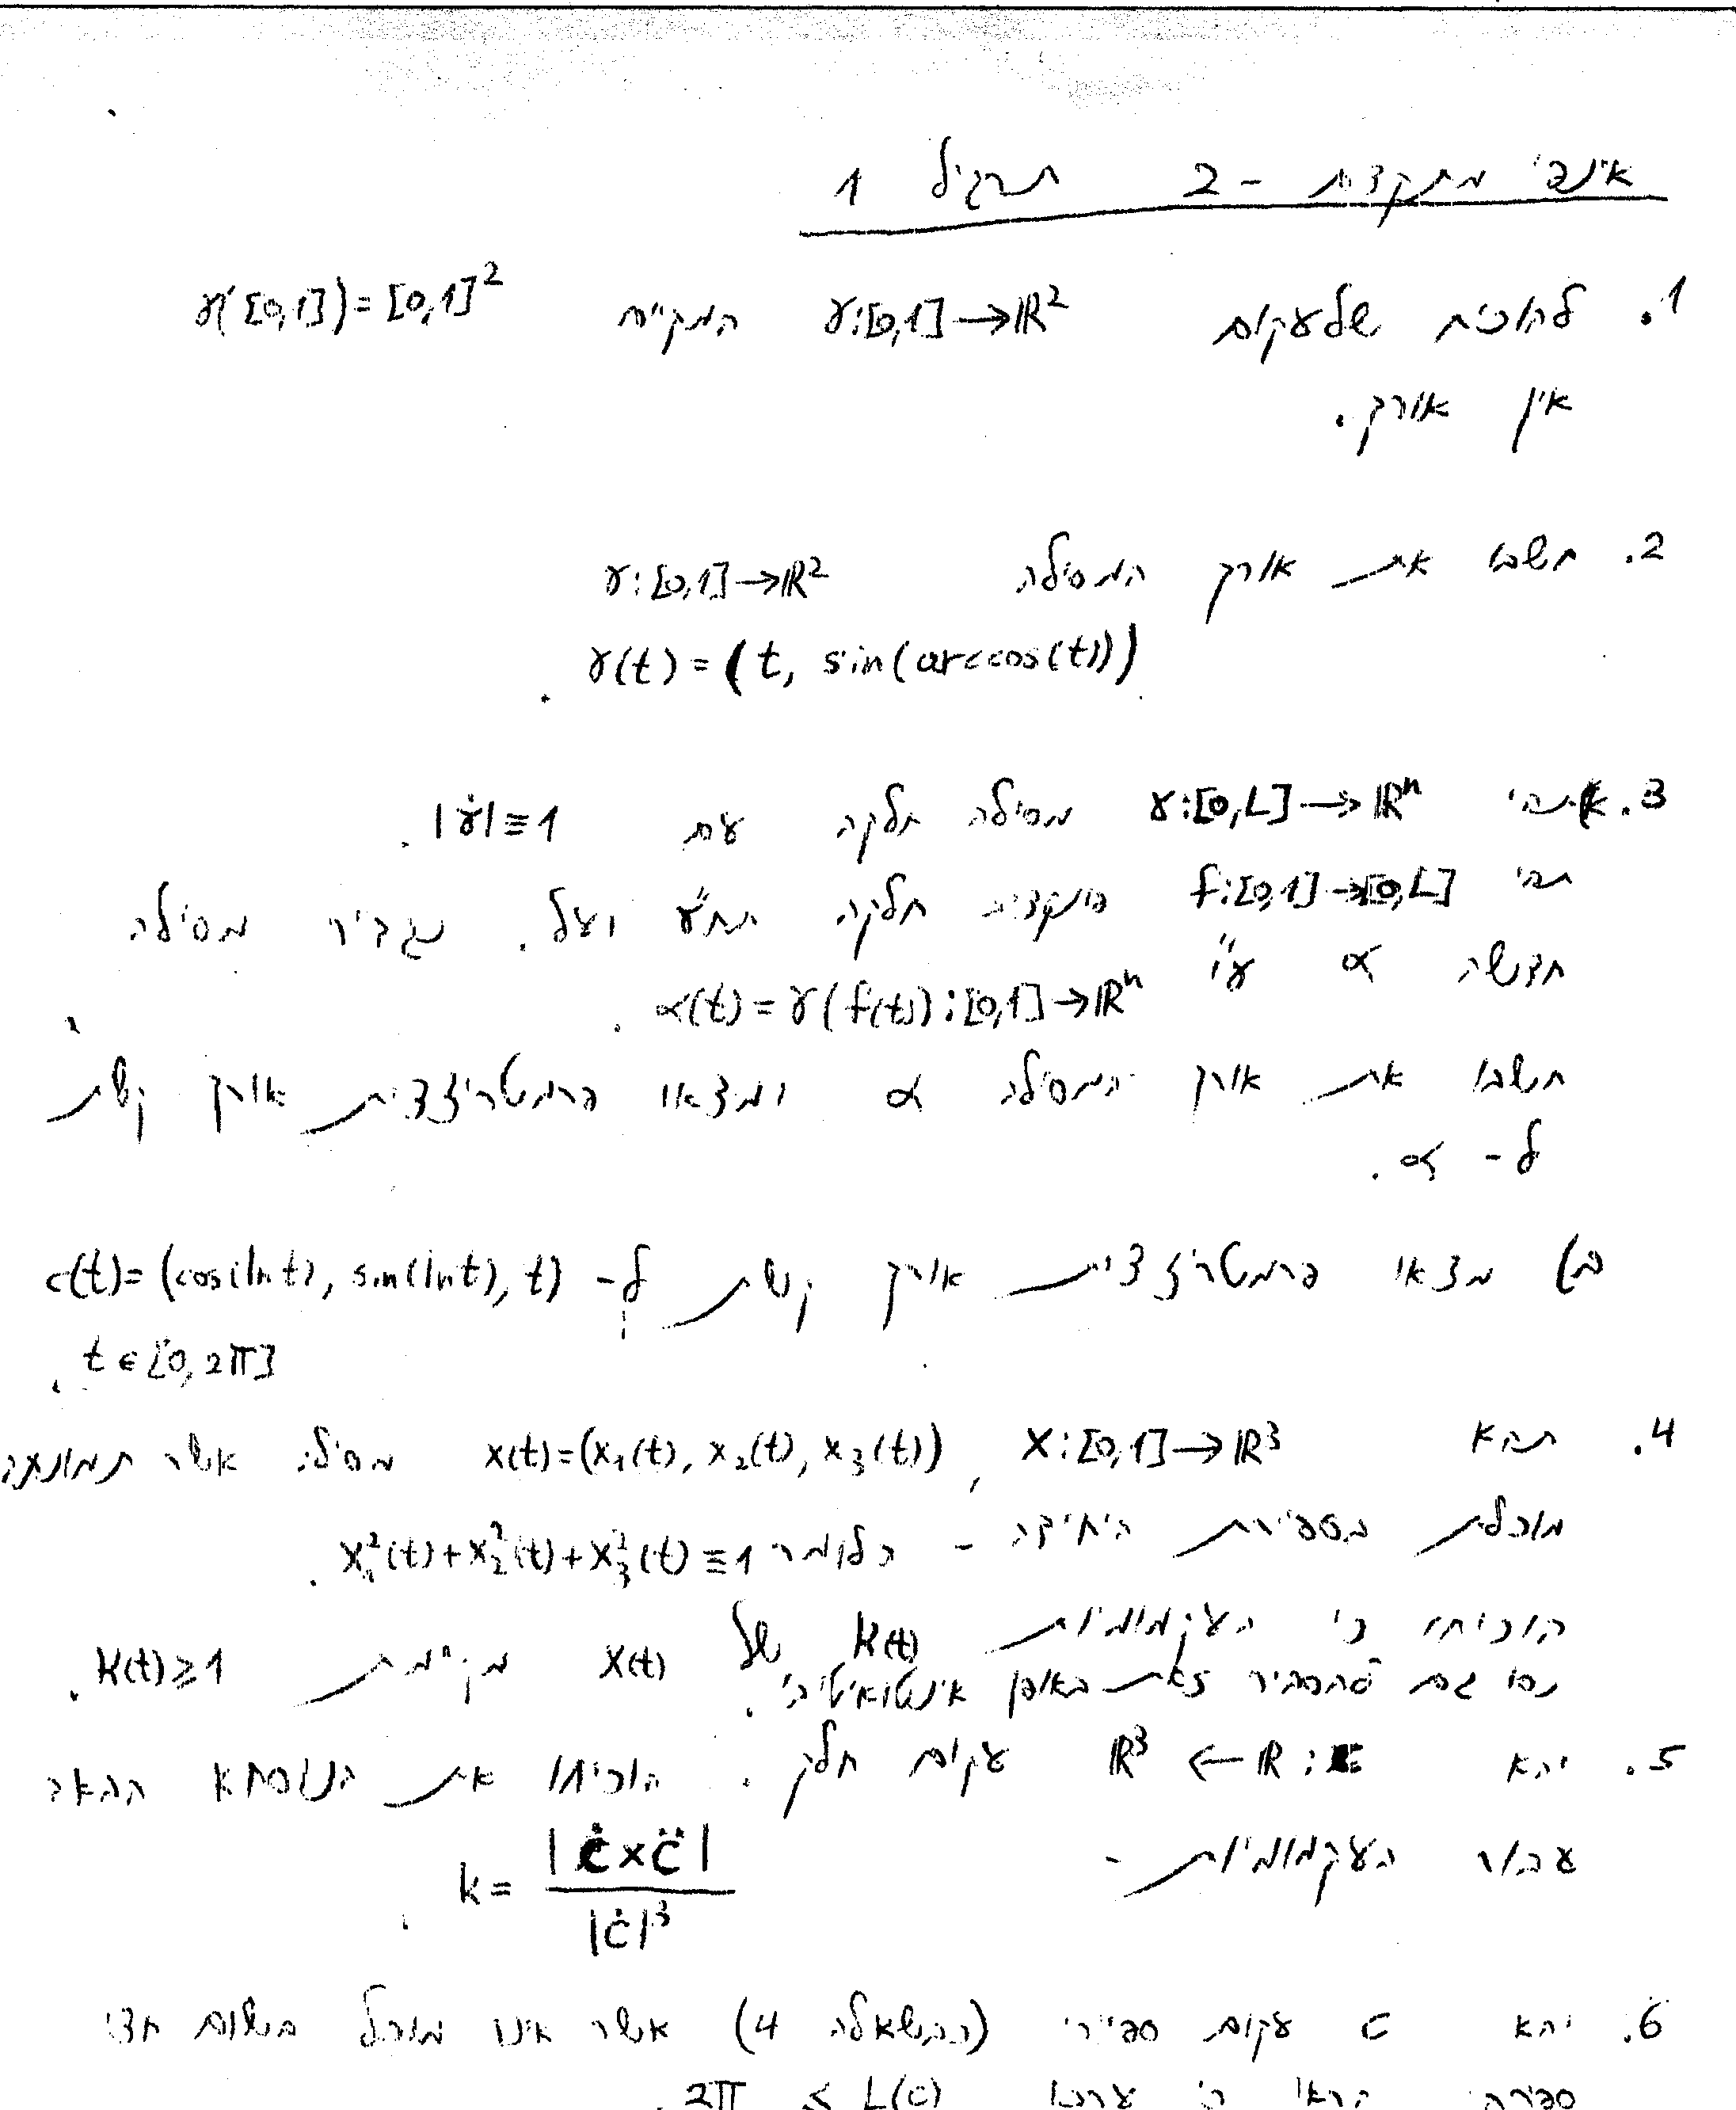 אינפי מתקדם - 2 תרגיל 1
1. להוכיח שלעקום γ:[0,1]→ℝ² המקיים γ([0,1])=[0,1]²
אין אורך.
2. חשבו את אורך המסילה γ:[0,1]→ℝ²
γ(t)=(t, sin(arccos(t))).
3. תהי γ:[0,L]→ℝⁿ מסילה חלקה עם |γ̇|≡1.
תהי f:[0,1]→[0,L] פונקציה חלקה חח"ע ועל. נגדיר מסילה
חדשה α ע"י α(t)=γ(f(t)):[0,1]→ℝⁿ.
חשבו את אורך המסילה α ומצאו פרמטריזציית אורך קשת
ל- α.
ב) מצאו פרמטריזציית אורך קשת ל- c(t)=(cos(ln t), sin(ln t), t)
t∈[0,2π].
4. תהא X:[0,1]→ℝ³, x(t)=(x₁(t), x₂(t), x₃(t)) מסילה אשר תמונתה
מוכלת בספירת היחידה - כלומר x₁²(t)+x₂²(t)+x₃²(t)≡1.
הוכיחו כי העקמומיות k(t) של x(t) מקיימת k(t)≥1.
נסו גם להסביר זאת באופן אינטואיטיבי.
5. יהא c: ℝ→ℝ³ עקום חלק. הוכיחו את הנוסחא הבאה
עבור העקמומיות -
k= |ċ×c̈| / |ċ|³.
6. יהא c עקום ספירי (כבשאלה 4) אשר אינו מוכל בשום חצי
ספירה הראו כי 2π ≤ L(c).